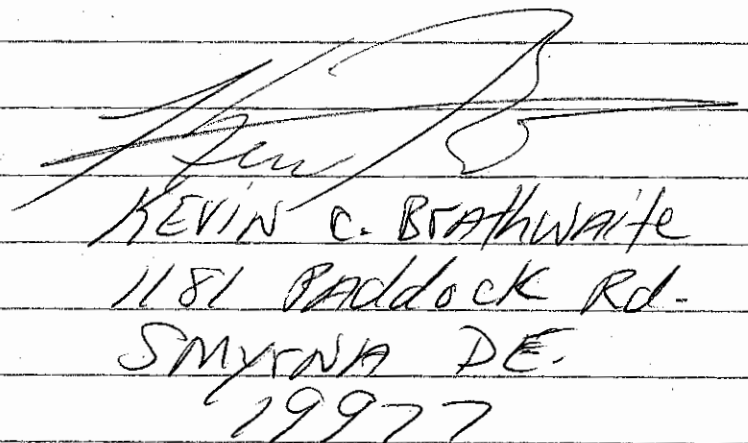 KEVIN C. BrAthWAite
1181 PAddock Rd.
SMyrNA DE.
19977